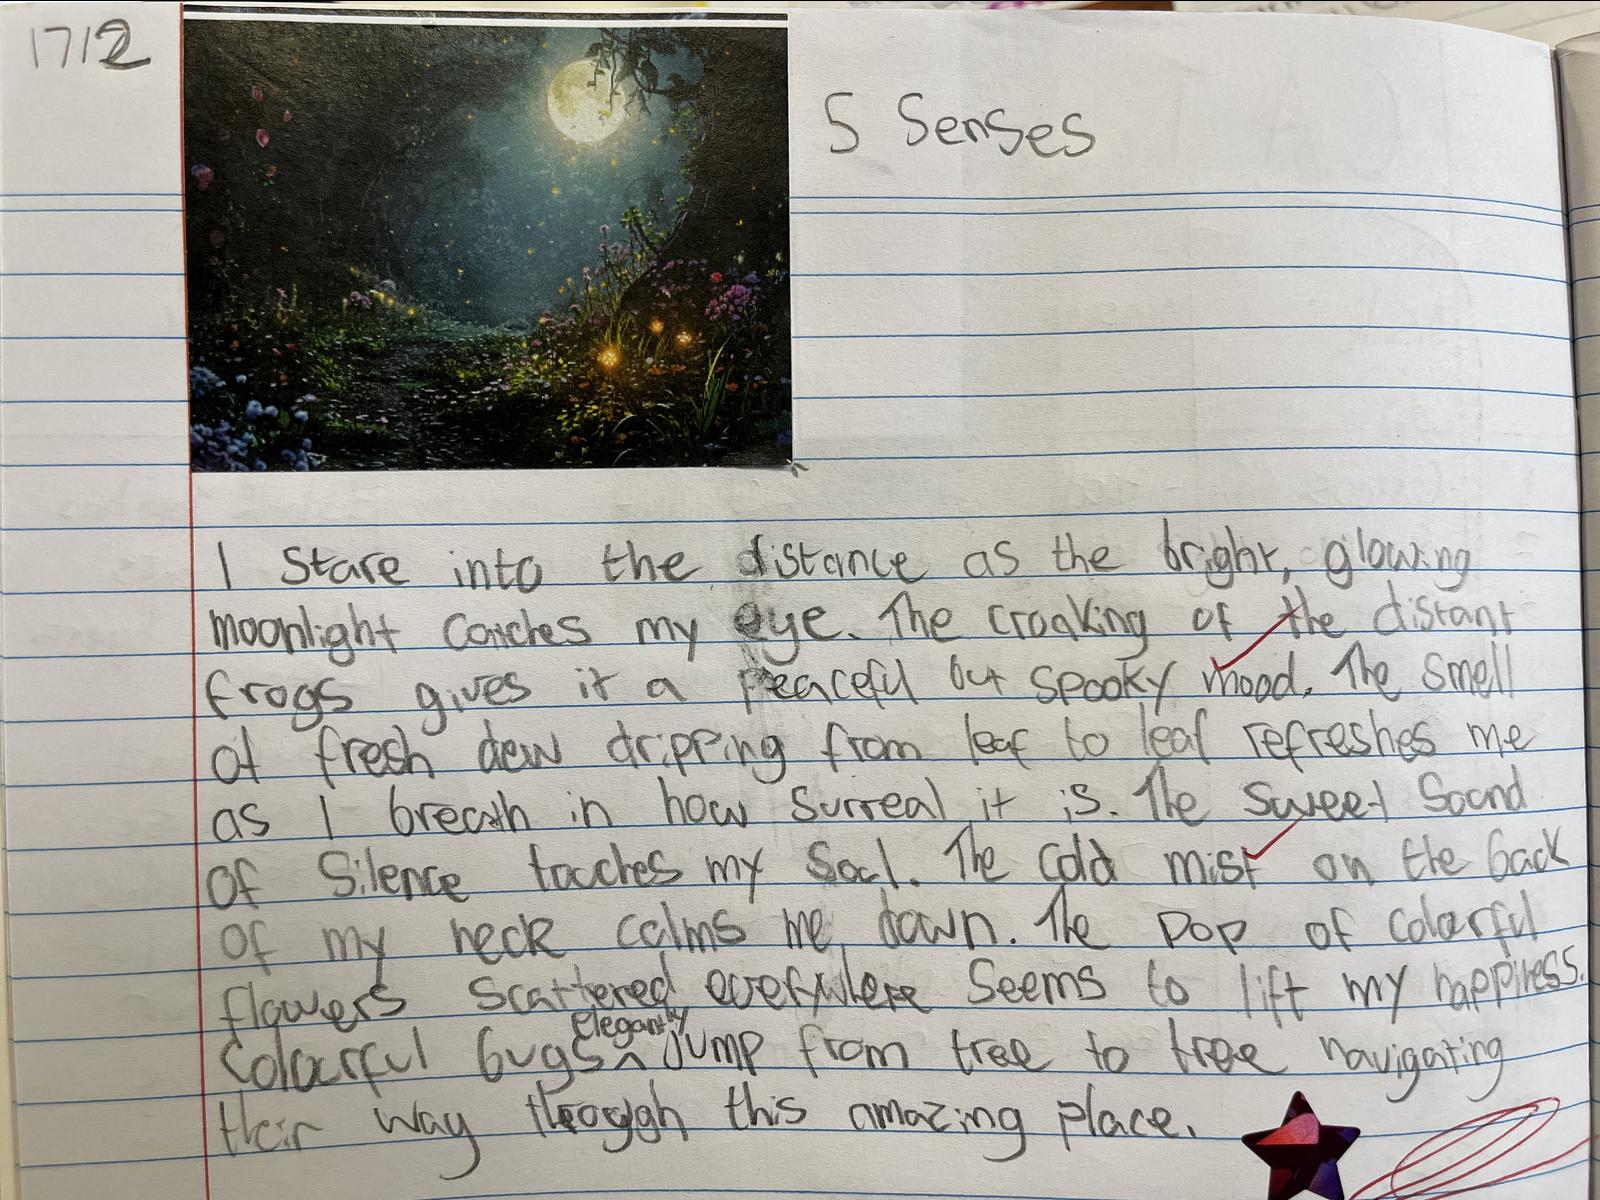 17/2
5 Senses
I stare into the distance as the bright, glowing
moonlight catches my eye. The croaking of the distant
frogs gives it a peaceful but spooky mood. The smell
of fresh dew dripping from leaf to leaf refreshes me
as I breath in how surreal it is. The sweet sound
of silence touches my soul. The cold mist on the back
of my neck calms me down. The pop of colorful
flowers scattered everywhere seems to lift my happiness.
elegantly
Colourful bugs ^ jump from tree to tree navigating
their way through this amazing place.